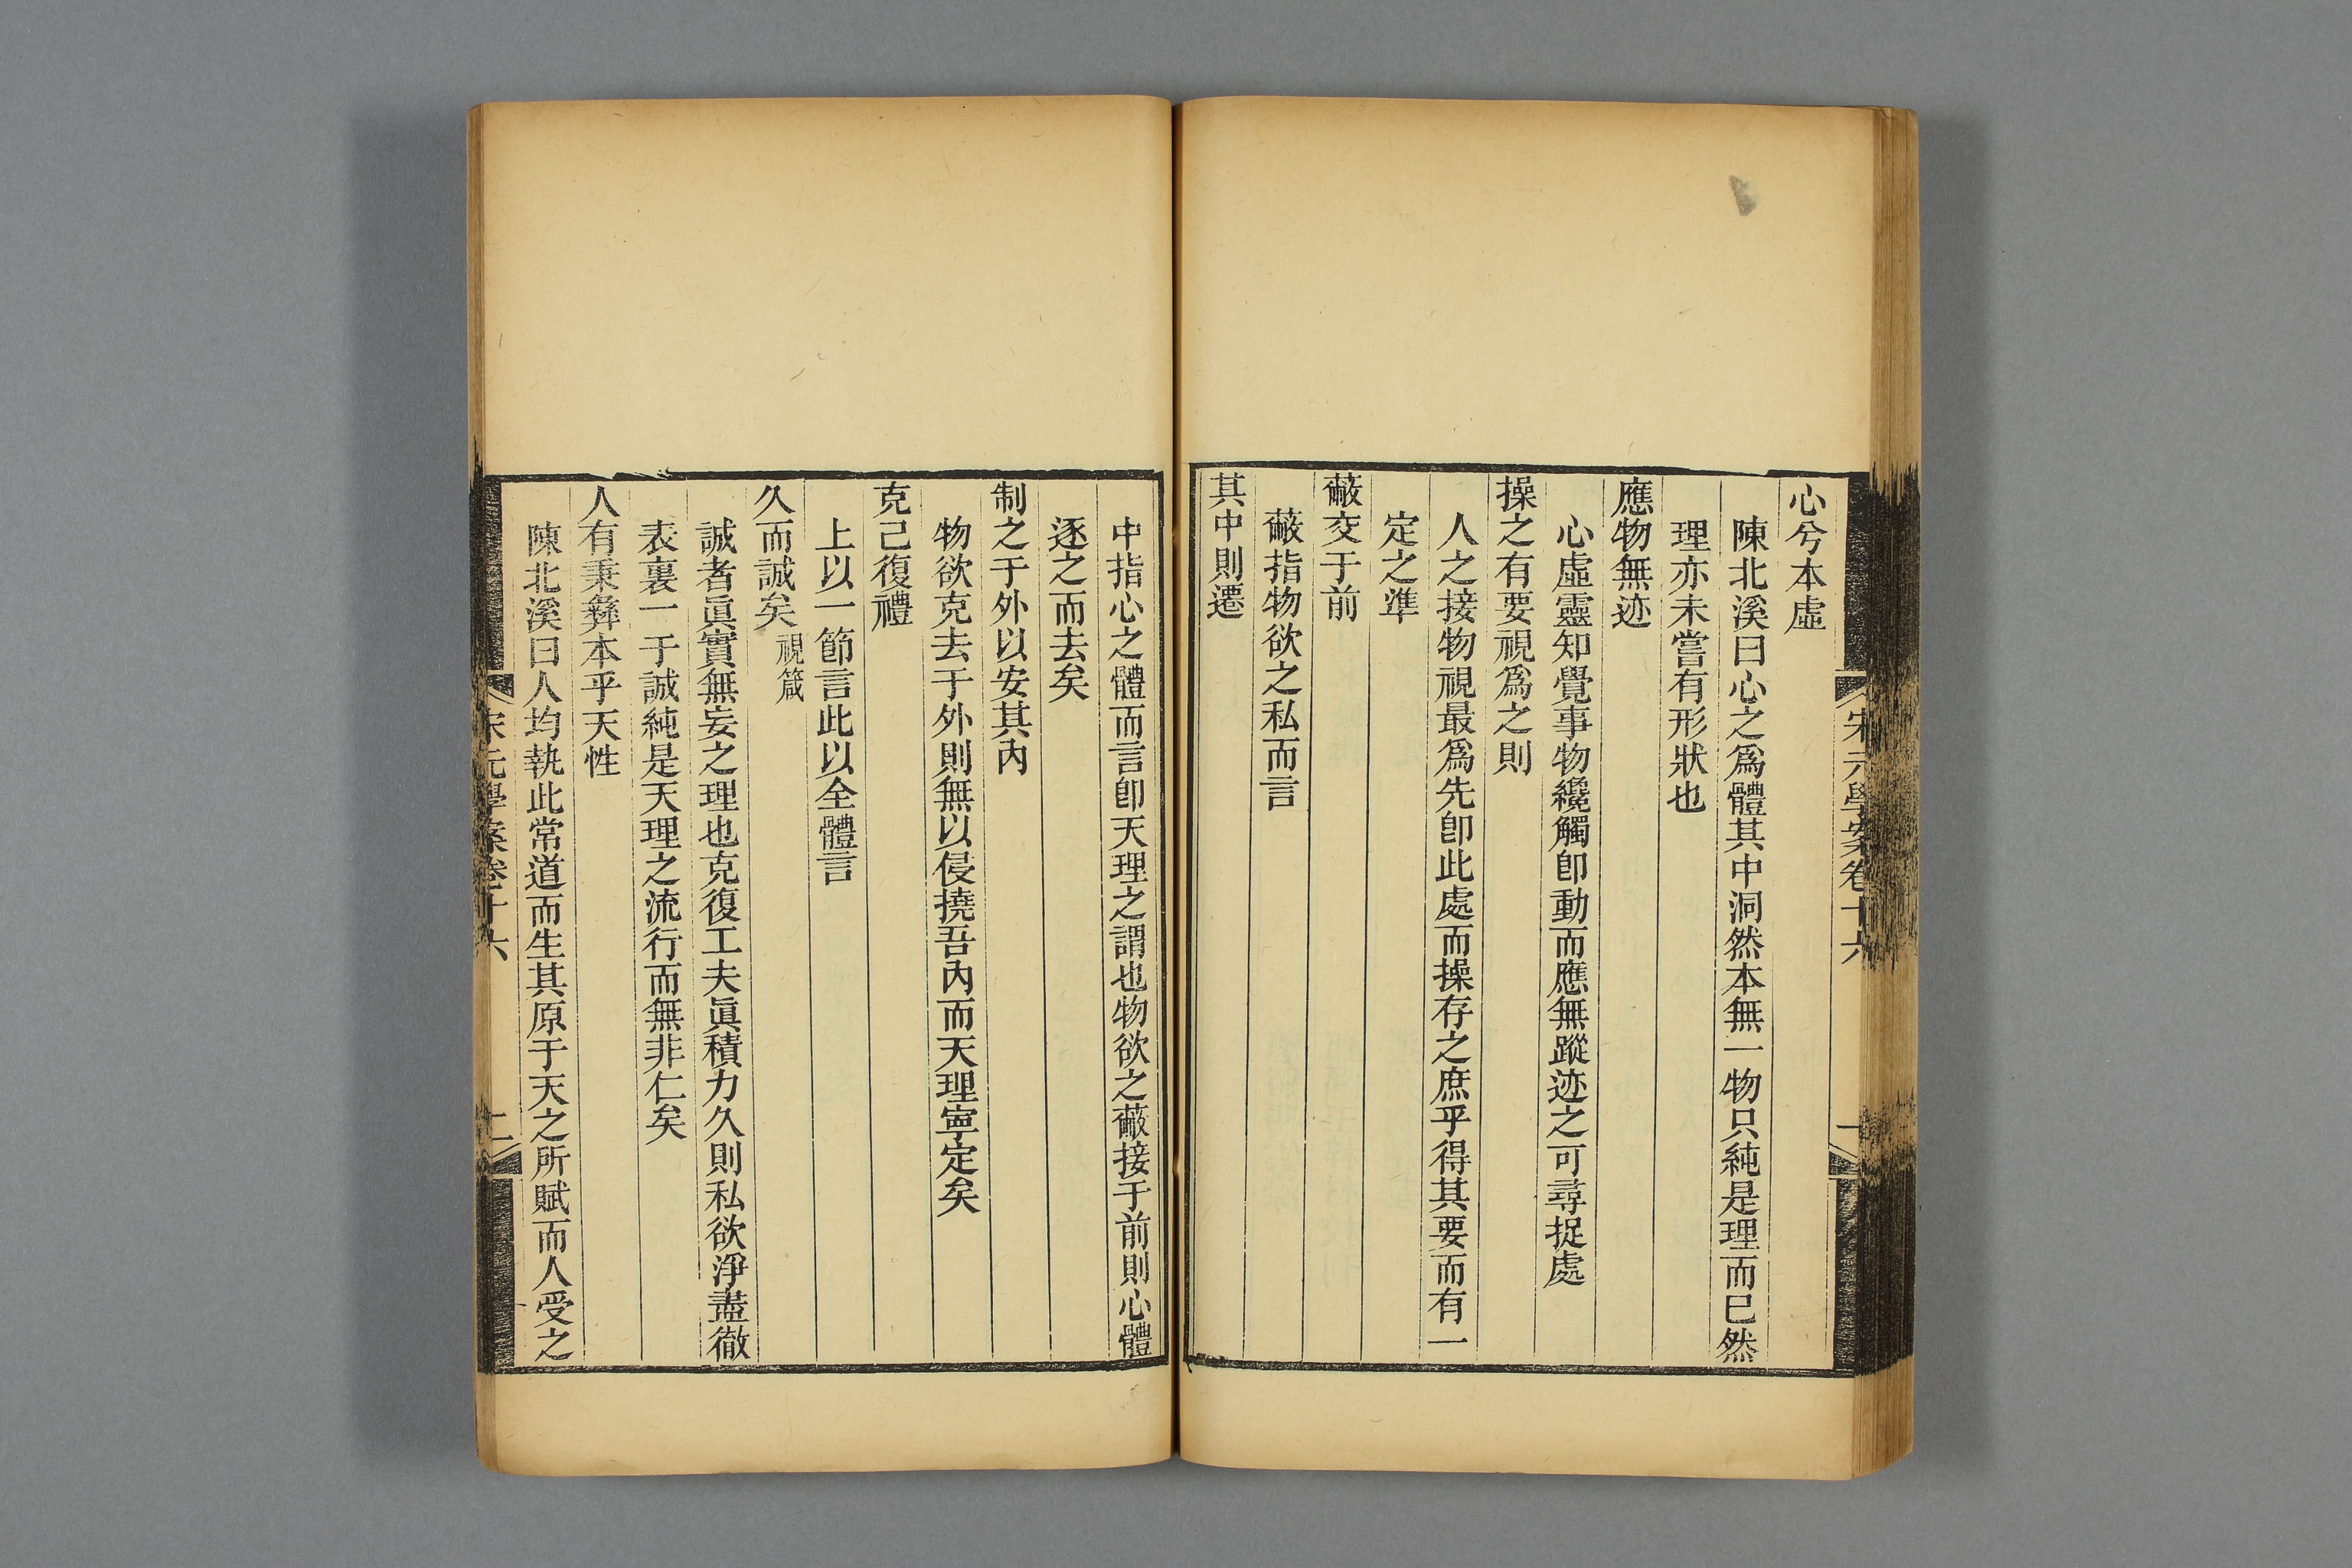 宋元學案卷十六
心兮本虛
陳北溪曰心之爲體其中洞然本無一物只純是理而已然
理亦未嘗有形狀也
應物無迹
心虛靈知覺事物纔觸卽動而應無蹤迹之可尋捉處
操之有要視爲之則
人之接物視最爲先卽此處而操存之庶乎得其要而有一
定之準
蔽交于前
蔽指物欲之私而言
其中則遷
中指心之體而言卽天理之謂也物欲之蔽接于前則心體
逐之而去矣
制之于外以安其內
物欲克去于外則無以侵撓吾內而天理寧定矣
克己復禮
上以一節言此以全體言
久而誠矣視箴
誠者眞實無妄之理也克復工夫眞積力久則私欲淨盡徹
表裏一于誠純是天理之流行而無非仁矣
人有秉彝本乎天性
陳北溪曰人均執此常道而生其原于天之所賦而人受之
宋元學案卷十六
二